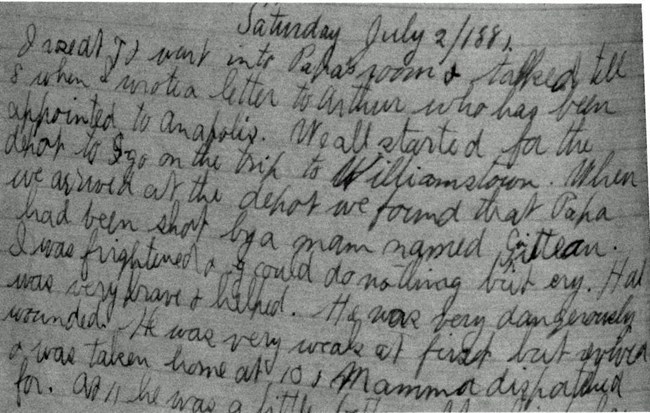 Saturday July 2/1881.
I rose at 7 & went into Papa's room & talked till
8 when I wrote a letter to Arthur who has been
appointed to Anapolis. We all started for the
depot to go on the trip to Williamstown. When
we arrived at the depot we found that Papa
had been shot by a mam named Gitteau.
I was frightened & could do nothing but cry. Hal
was very brave & helped. He was very dangerously
wounded. He was very weak at first but revived
& was taken home at 10 & Mamma dispatched
for. At 11 he was a little